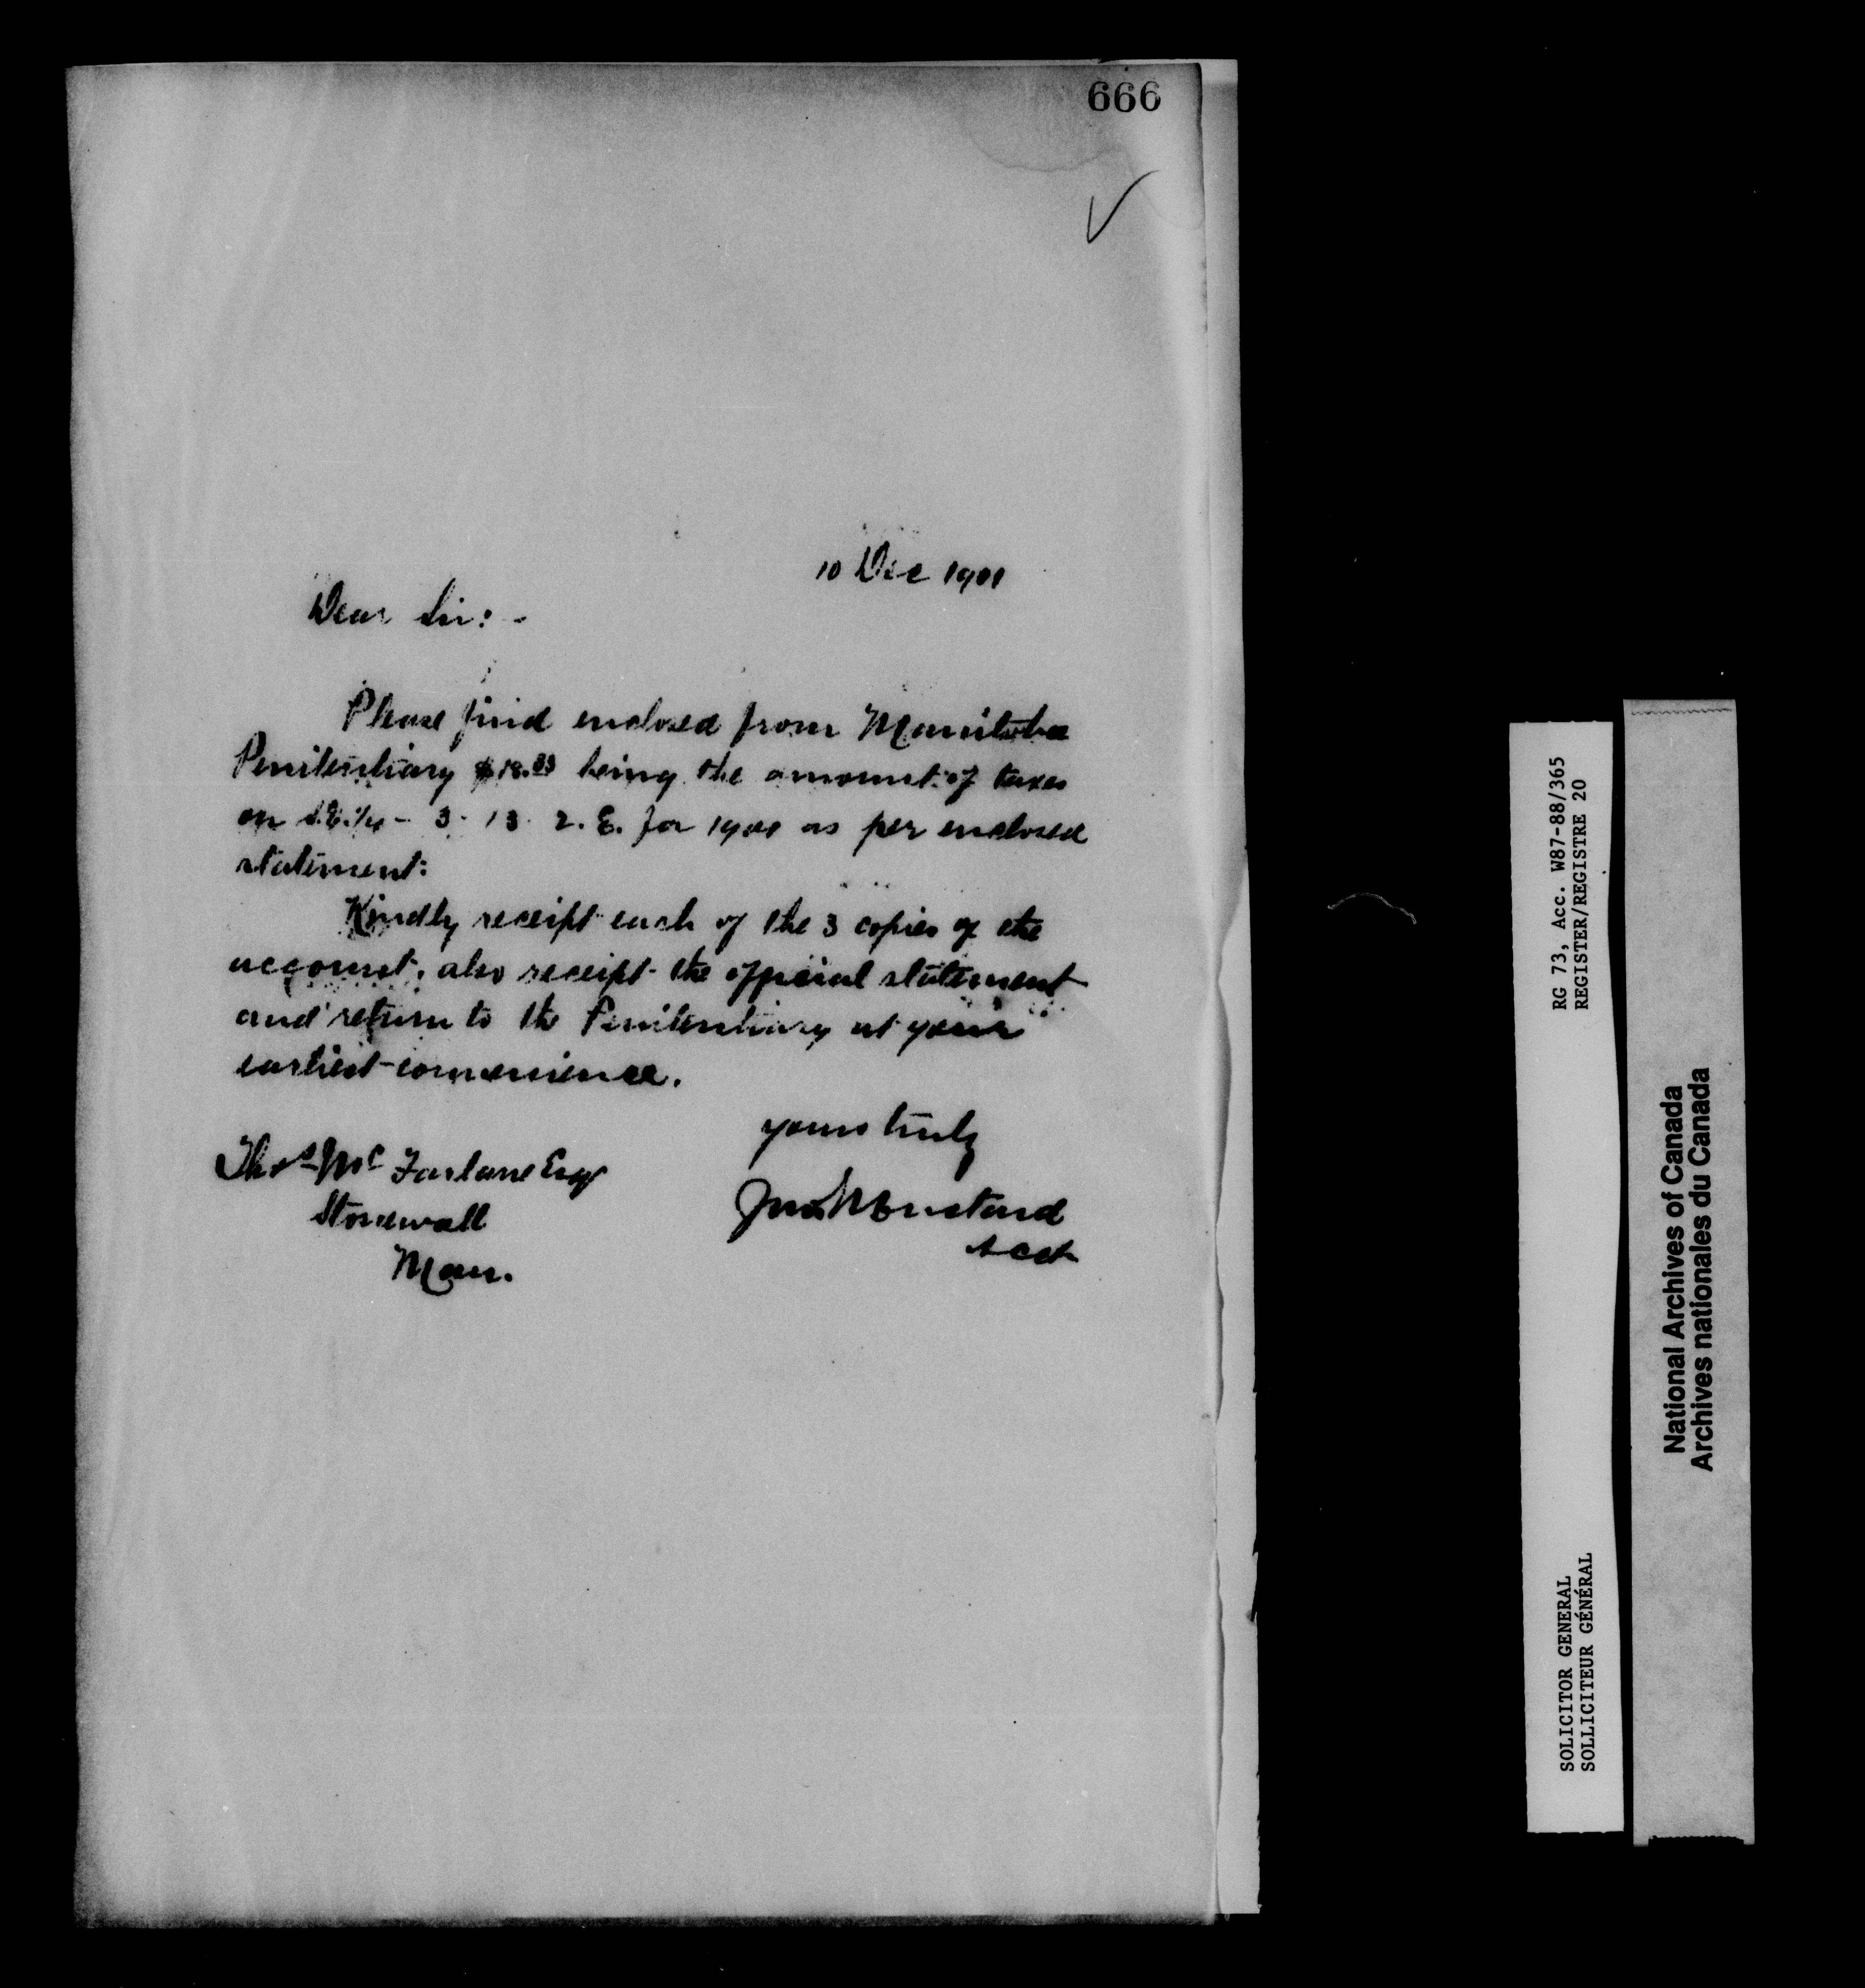 666
10 Dec 1901
Dear Sir: -
Please find enclosed from Manitoba
Penitentiary $18.83 being the amount of taxes
on S.E. 1/4 - 3 - 13 2. E. for 1901 as per enclosed
statement:
Kindly receipt each of the 3 copies of the
account, also receipt the official statement
and return to the Penitentiary at your
earliest convenience.
yours truly
Thos Mc Farlane Esq
Stonewall
Man.
Jno Mustard
Acct
RG 73, Acc. W87-88/365
REGISTER/REGISTRE 20
SOLICITOR GENERAL
SOLLICITEUR GÉNÉRAL
National Archives of Canada
Archives nationales du Canada